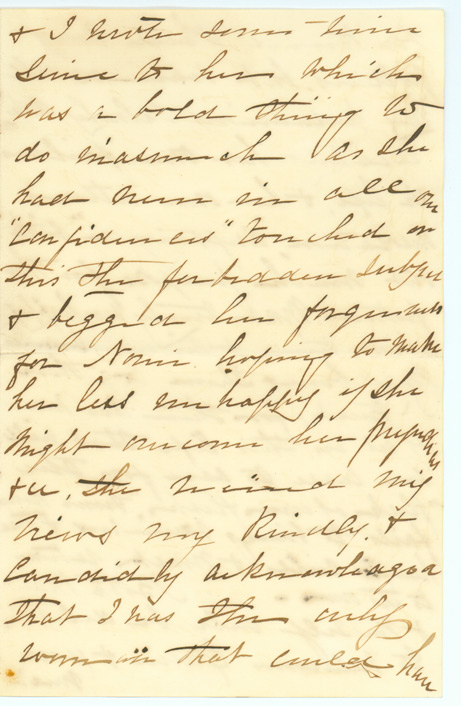 & I wrote some time
since to her which
was a bold thing to
do inasmuch as she
had never in all our
"Confidences" touched on
this the forbidden subject
& begged her forgiveness
for Nonie hoping to make
her less unhappy if she
might overcome her prejudices
&c, she received my
views very kindly, &
Candidly acknowledged
that I was the only
woman that could have